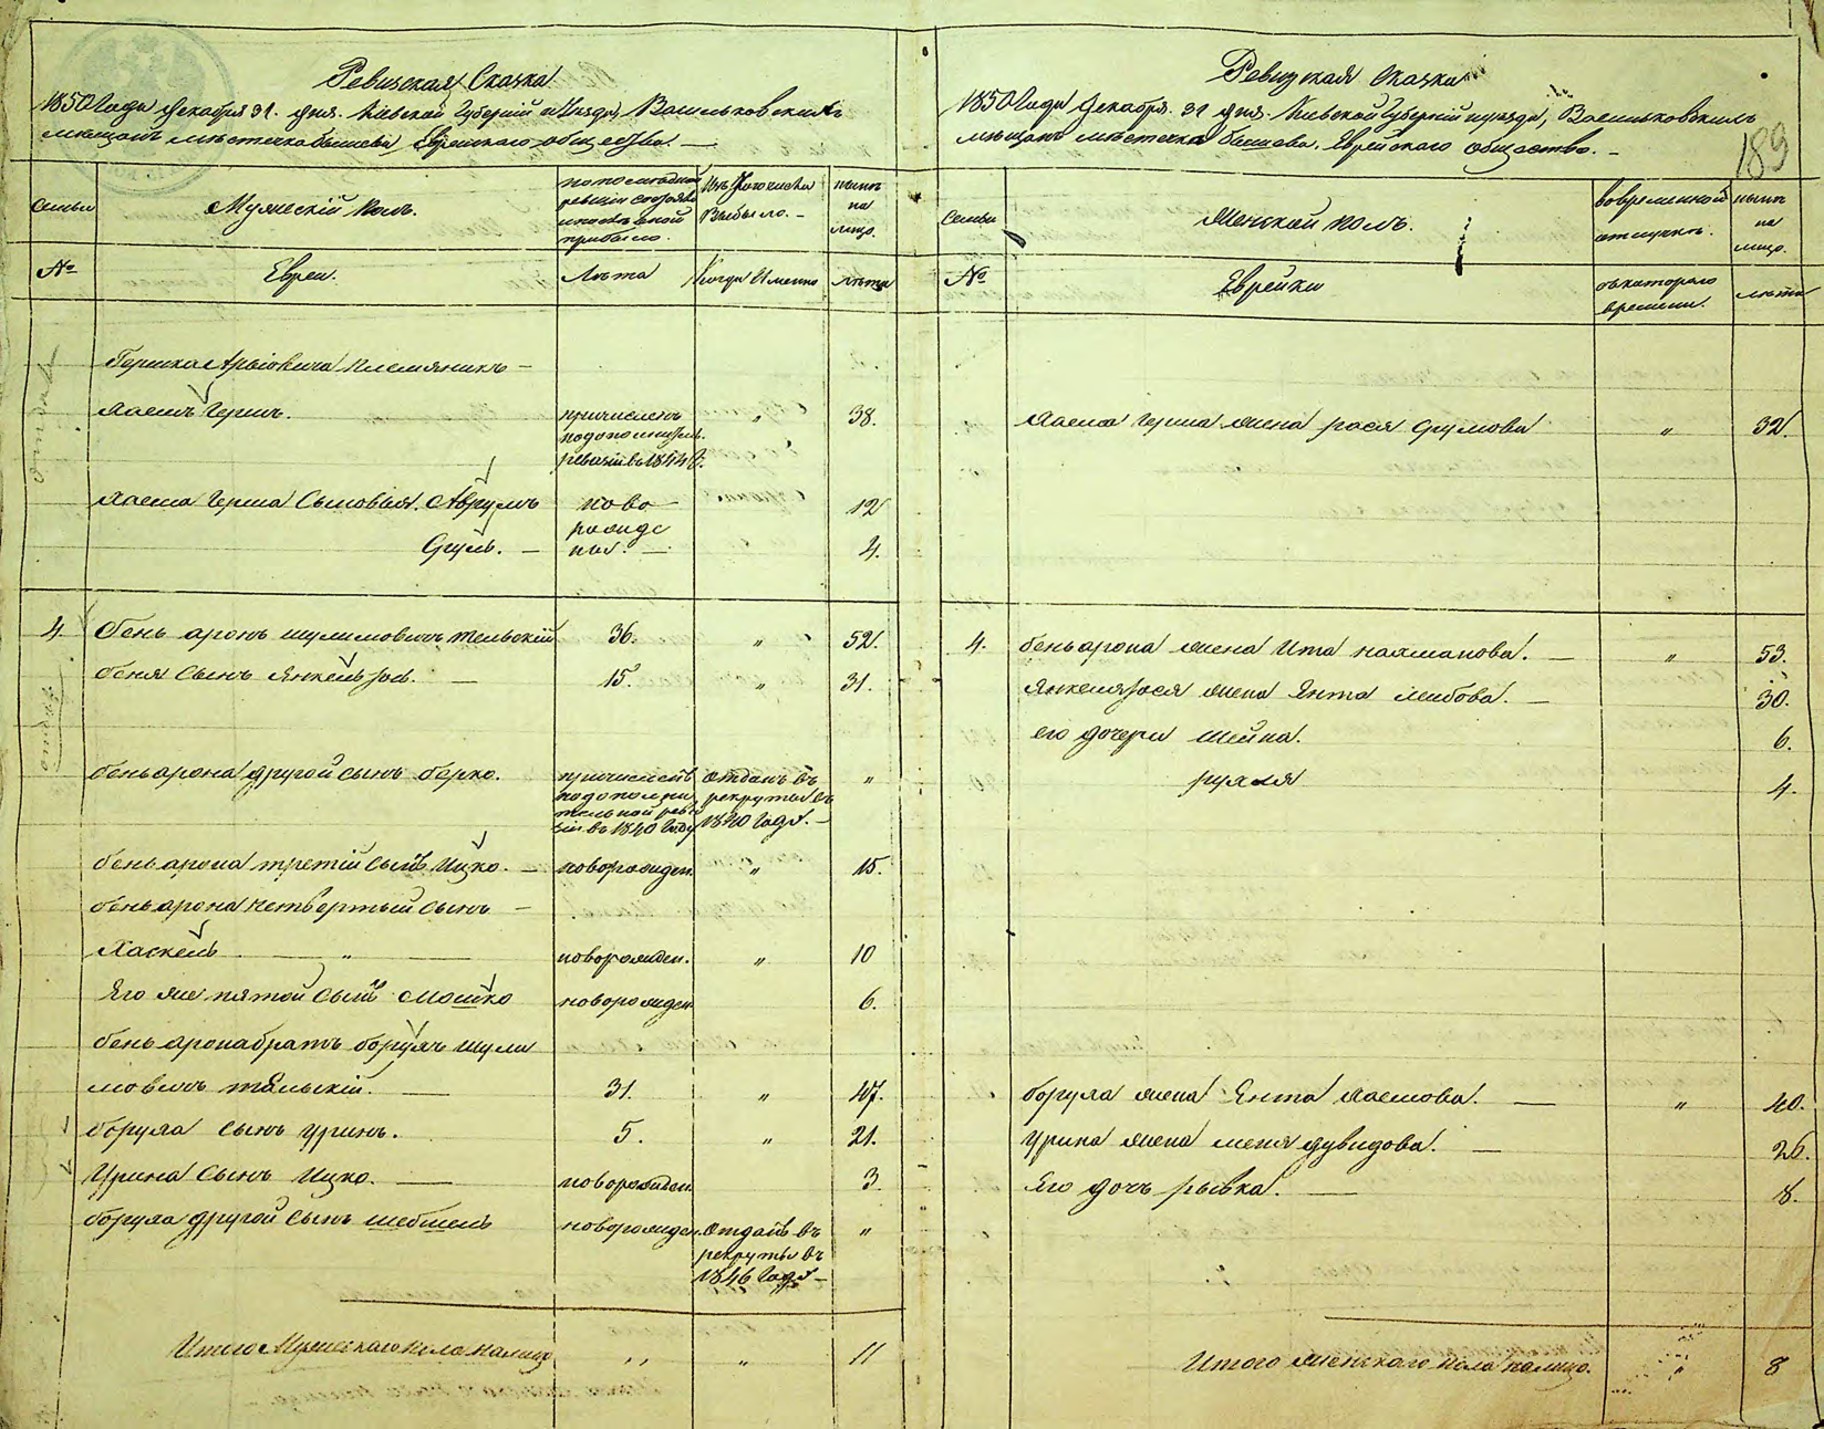 Ревизская Сказка
1850 Года Декабря 31. дня. Кіевской Губерніи и Уезда, Васильковскихъ
мещанъ местечка Бышева, Еврейскаго общества. —
Семьи
Мужескій полъ.
по последней
ревизіи состояло
и после оной
прибыло.
Изъ того числа
Выбыло. —
ныне
на
лицо.
№
Евреи.
Лета
Когда Именно
лета
Гершка Арьіовича племяникъ —
Хаемъ Гершъ.
причисленъ
по дополнитель.
ревизіи въ 1844 г.
"
38.
Хаема Герша Сыновья. Аврумъ
ново
рожде
ные. —
12
Сруль. —
4.
4.
бень аронъ шулимовичъ тельскій
36.
"
52.
беня Сынъ Янкель Іос. —
15.
"
31.
бень арона другой сынъ берко.
причисленъ
по дополни
тельной реви
зіи въ 1840 Году
отданъ въ
рекруты въ
1840 Годе. —
"
бень арона третій Сынъ Ицко. —
новорожден.
"
15.
бень арона четвертый Сынъ —
Хаскель — " —
новорожден.
"
10
Его же пятой Сынъ Мошко
новорожден.
6.
бень арона братъ борухъ шули
мовичъ тельскій. —
31.
"
47.
боруха сынъ Уринъ.
5.
"
21.
Урина Сынъ Ицко. —
новорожден.
3
боруха другой Сынъ шебшель
новорожден.
отданъ въ
рекруты въ
1846 Годе —
"
Итого Мужескаго пола налицо
"
"
11
Ревизкая Сказка
1850 Года Декабря. 31 дня. Кіевской Губерніи и уезда, Васильковскихъ
мещанъ местечка Бышева. Еврейскаго общество. —
189
Семьи
Женской полъ.
во временной
отлучке.
ныне
на
лицо.
№
Еврейки
съ котораго
времени.
лета
Хаема Герша жена рася Срулова
"
32.
4.
бень арона жена Ита нахманова. —
"
53.
Янкеля Іося жена Янта лейбова. —
30.
его дочери шейна.
6.
рухля
4.
боруха жена Янта Хаемова. —
"
40.
Урина жена меня дувидова. —
26.
Его дочь рывка. —
8.
Итого женскаго пола налицо.
"
8